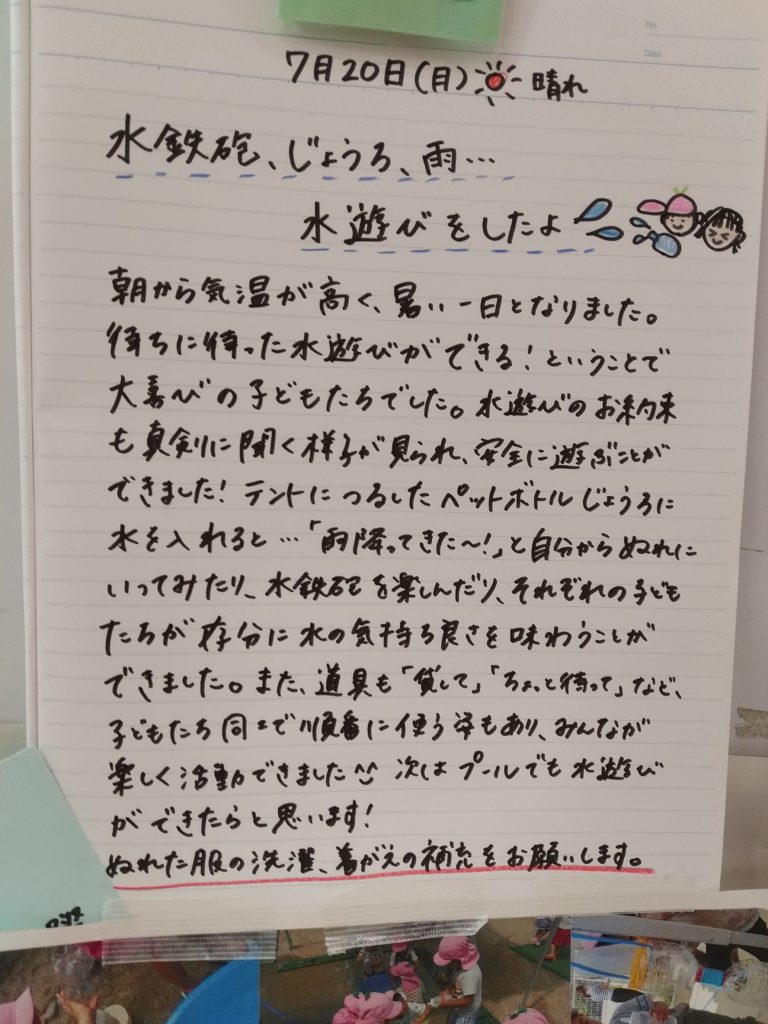 No.
Date
7月20日(月) 晴れ
水鉄砲、じょうろ、雨…
水遊びをしたよ
朝から気温が高く、暑い一日となりました。
待ちに待った水遊びができる！ということで
大喜びの子どもたちでした。水遊びのお約束
も真剣に聞く様子が見られ、安全に遊ぶことが
できました！テントにつるしたペットボトルじょうろに
水を入れると…「雨降ってきた〜！」と自分からぬれに
いってみたり、水鉄砲を楽しんだり、それぞれの子ども
たちが存分に水の気持ち良さを味わうことが
できました。また、道具も「貸して」「ちょっと待って」など、
子どもたち同士で順番に使う姿もあり、みんなが
楽しく活動できました 次はプールでも水遊び
ができたらと思います！
ぬれた服の洗濯、着がえの補充をお願いします。